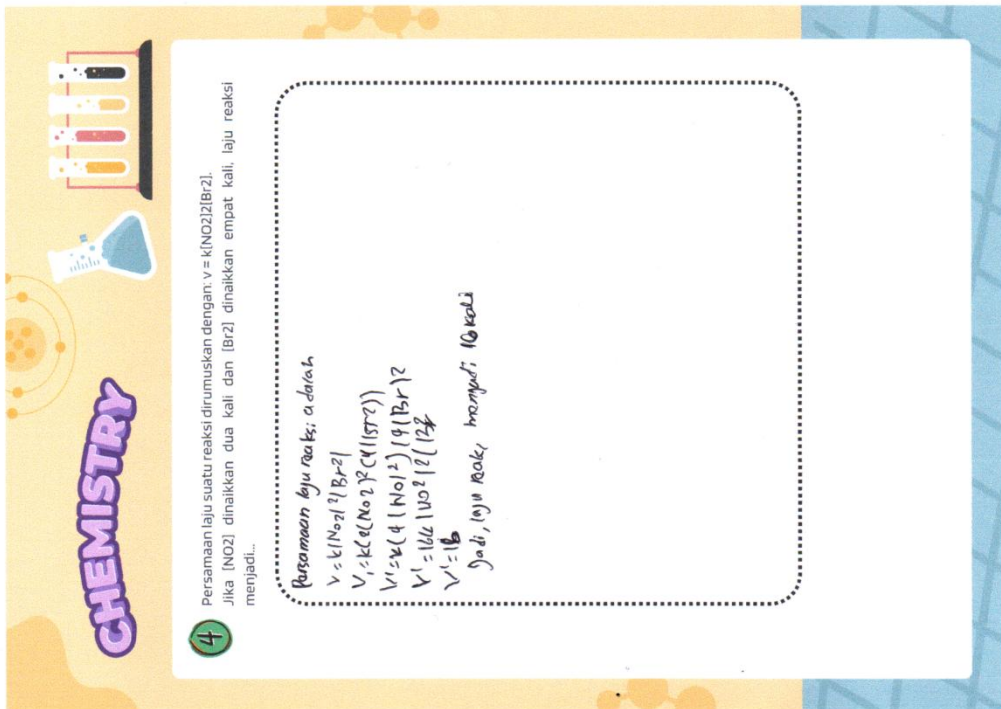 CHEMISTRY
4
Persamaan laju suatu reaksi dirumuskan dengan: v = k[NO2]2[Br2].
Jika [NO2] dinaikkan dua kali dan [Br2] dinaikkan empat kali, laju reaksi
menjadi...
Persamaan laju reaksi adalah
V = k|No2|²|Br2|
V₁ = k(2(No2)²(4||Br2))
V' = k(4(No|²)(4(Br)2
V' = 16k|NO²|2(
V' = 16
Jadi, laju reaksi menjadi 16 kali